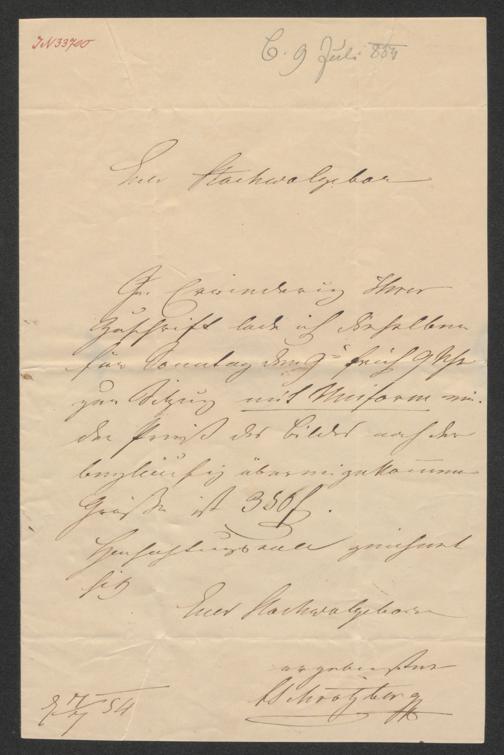 IN 33700
C. 9 Juli 854
Euer Hochwolgeboren
In Erwiederung Ihrer
Zuschrift lade ich dieselben
für Sonntag den 9t früh 9 Uhr
zur Sitzung mit Uniform ein.
der Preiß des Bildes nach der
beyläufig übereingekommenen
Größe ist 350 f.
Hochachtungsvoll zeichnet
sich
Euer Hochwolgeboren
ergebenster
Schrotzberg
54